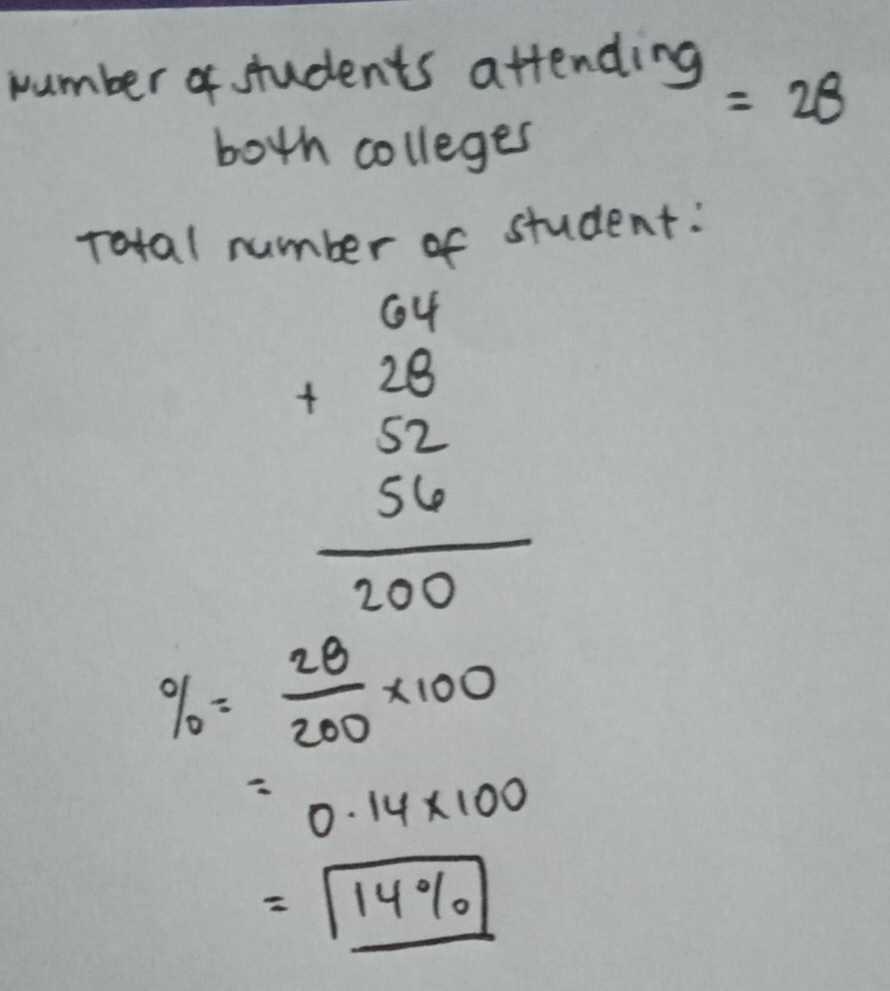 Number of students attending
both colleges = 28
Total number of student:
64
+ 28
52
56
200
% = 28/200 x 100
= 0.14 x 100
= 14%